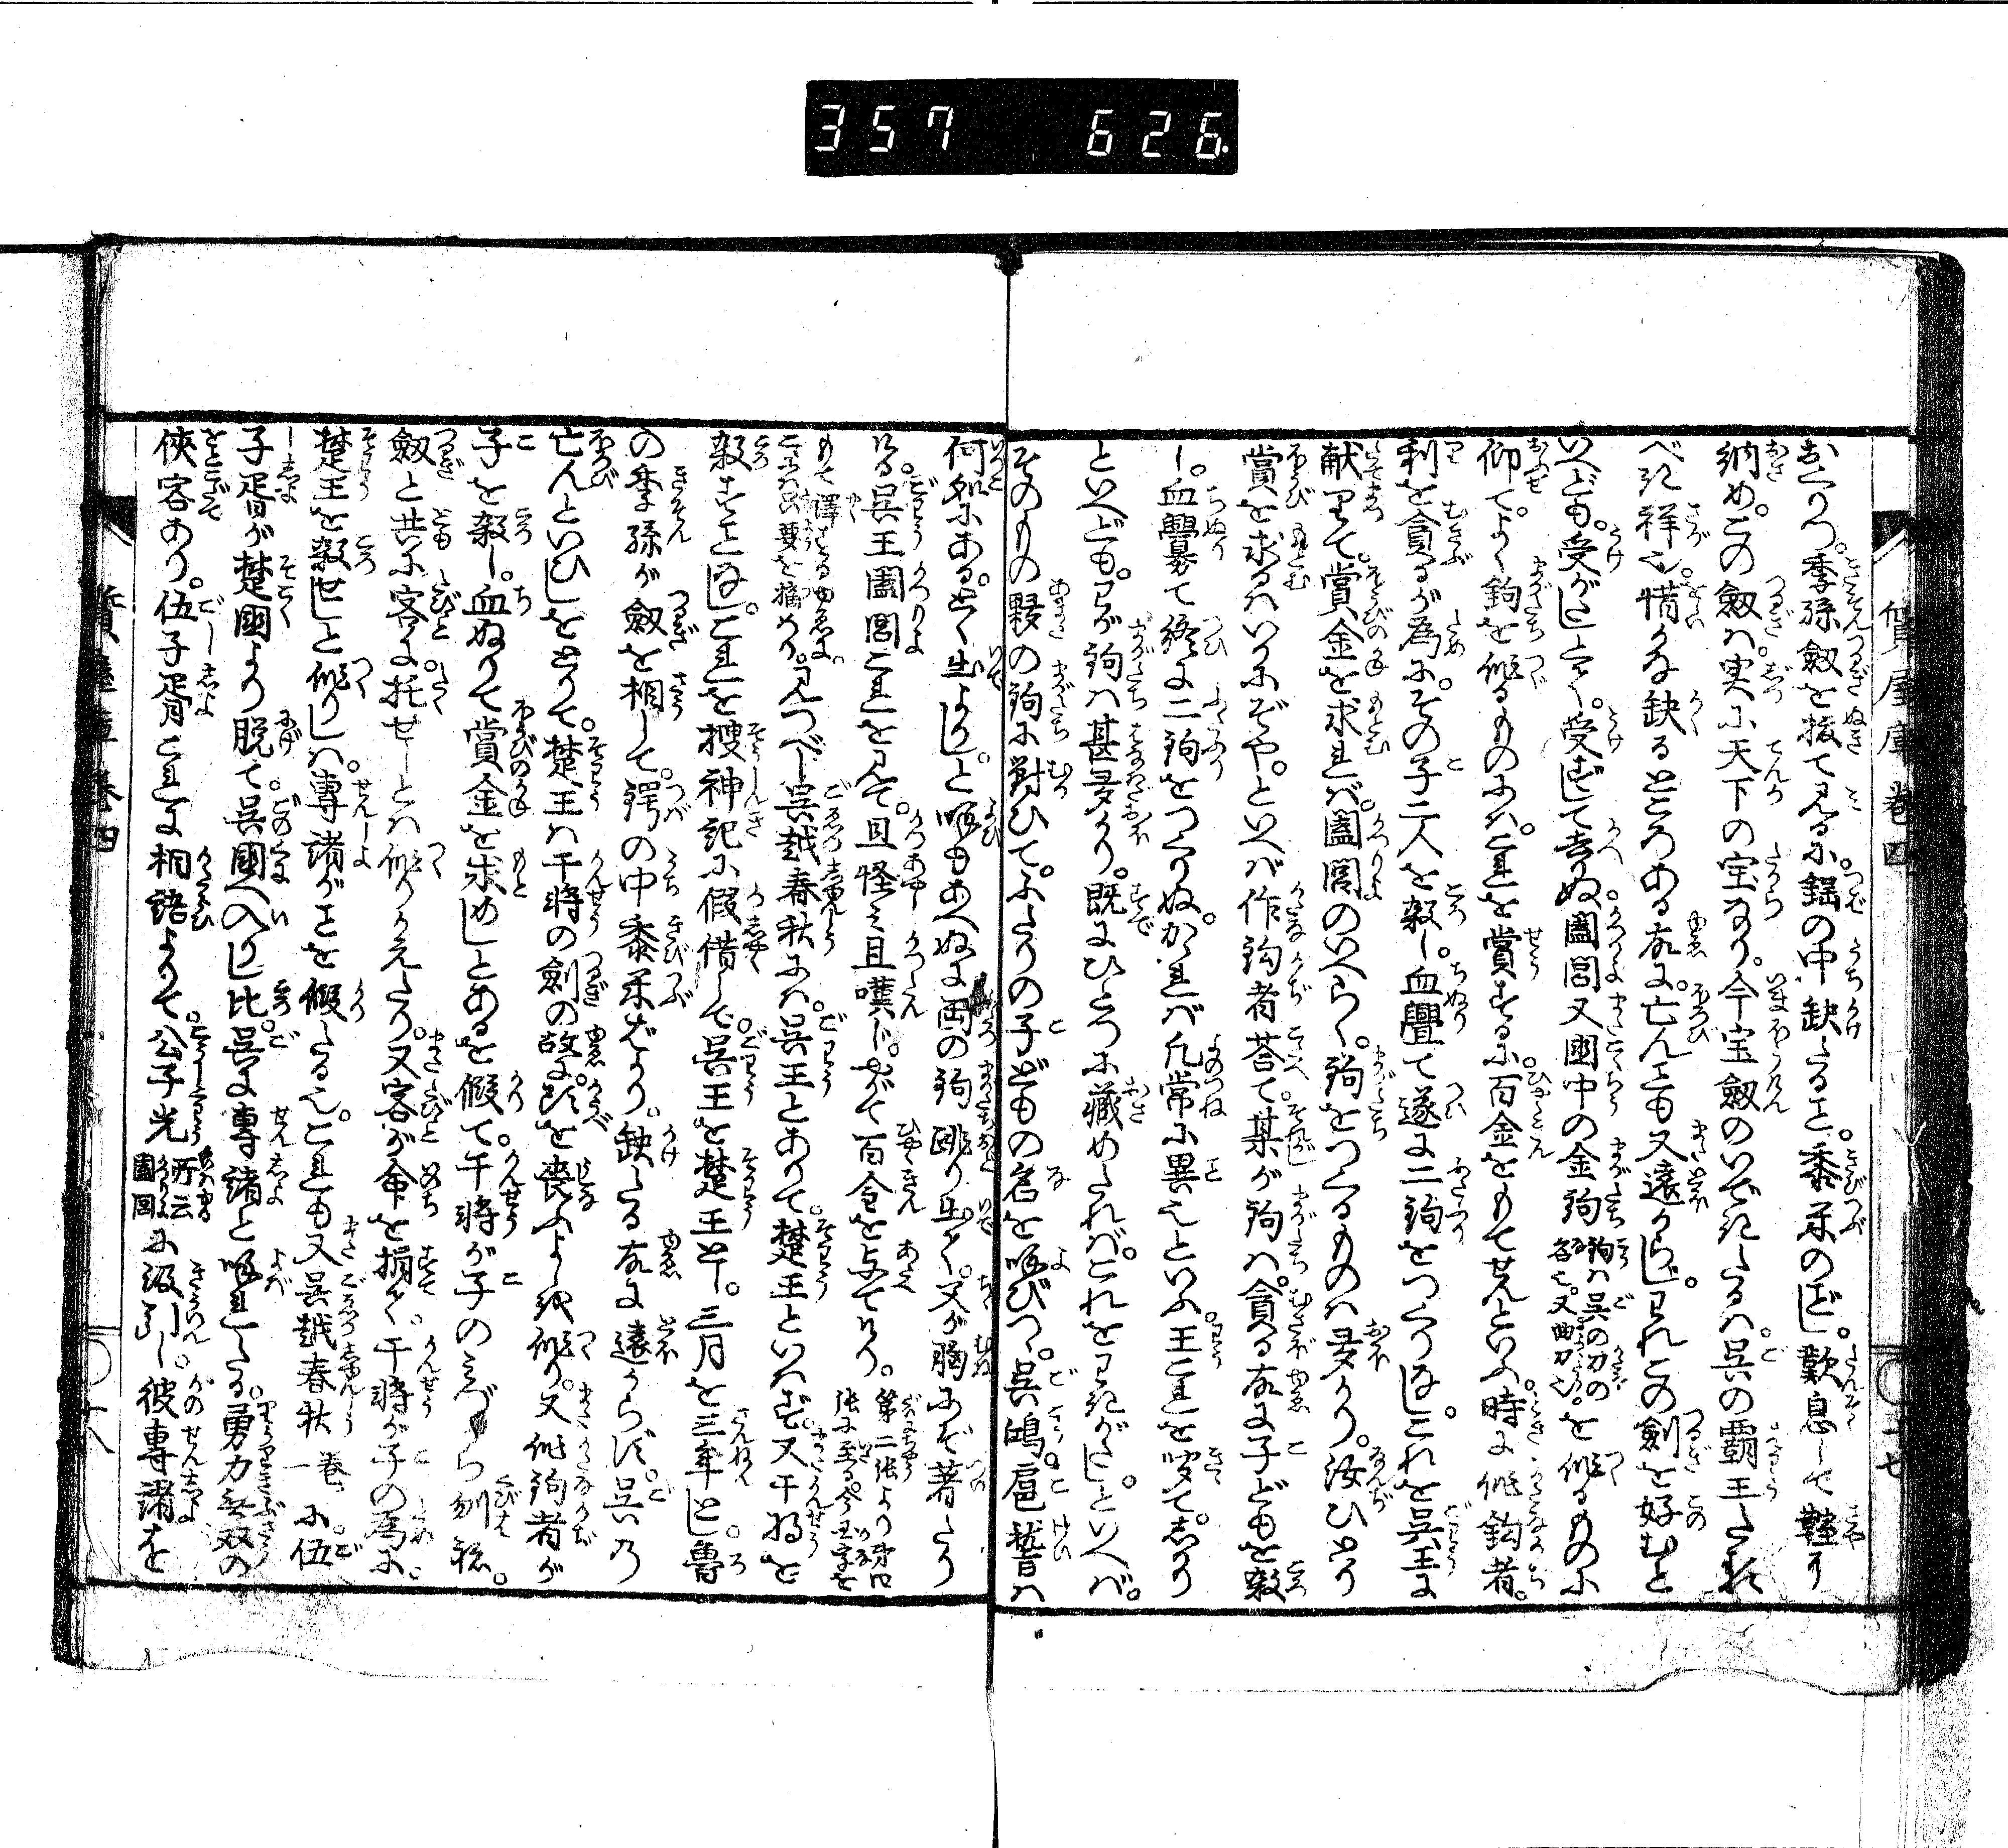 357 626
質屋庫巻四
おくりつ。季孫劔を抜て見るに。鍔の中缺たること。黍米のごとし。歎息して鞘に
納め。この劔は。実に天下の宝なり。今宝劔のいできたるは。呉の覇王たる
べき祥也。惜かな缺るところある故に。亡んことも又遠からじ。われこの劔を好むと
いへども。受がたしとて。受ずして去ぬ。闔閭又国中の金鉤鉤は呉の刀の名也。又曲刀也。を作るものに
仰て。よく鉤を作るものには。これを賞するに。百金をもてせんといふ。時に作鈎者。
利を貪るが為に。その子二人を殺し。血舋て遂に二鉤をつくりなし。これを呉王に
献りて。賞金を求れば。闔閭のいへらく。鉤をつくるものは多かり。汝ひとり
賞を求るはいかにぞや。といへば作鈎者荅て。某が鉤は。貪る故に子どもを殺
し。血舋て終に二鉤をつくりぬ。かゝれば凡常に異也といふ。王これを聞て。しかり
といへども。わが鉤は甚多かり。既にひとつに蔵めたれば。これをわきがたし。といへば。
そのもの夥の鉤に対ひて。ふたりの子どもの名を喚びつ。呉鴻。扈稽は
何処にある。とく出よかし。と喚もあへぬに両の鉤跳り出て。父が胸にぞ著たり
ける。呉王闔閭これを見て。且怪み且嘆じ。やがて百金を与てけり。第二張より第四張に至る。今国字を
もて譯する由あれば。こゝには要を摘めり。見つべし呉越春秋には。呉王とありて。楚王といはず。又干将を
殺すことなし。これを捜神記に假借して。呉王を楚王とし。三月を三年とし。魯
の季孫が劔を相して。鍔の中黍米ばかり。缺たる故に遠からず。呉乃
亡んといひしをとりて。楚王は干将の劔の故に。頭を喪ふよしを作り。又作鉤者が
子を殺し。血ぬりて賞金を求めしとあるを假て。干将が子のみづから刎ね。
劔と共に客に。托せしとは作りかえたり。又客が命を捐て。干将が子の為に。
楚王を殺せしと作りしは。専諸がことを假たる也。これも又呉越春秋一巻に。伍
子胥が楚国より脱て。呉国へ入りし比。呉に専諸と喚れたる。勇力無双の
侠客あり。伍子胥これに相語よりて。公子光所云闔閭に汲引し。彼専諸を
質屋庫巻四